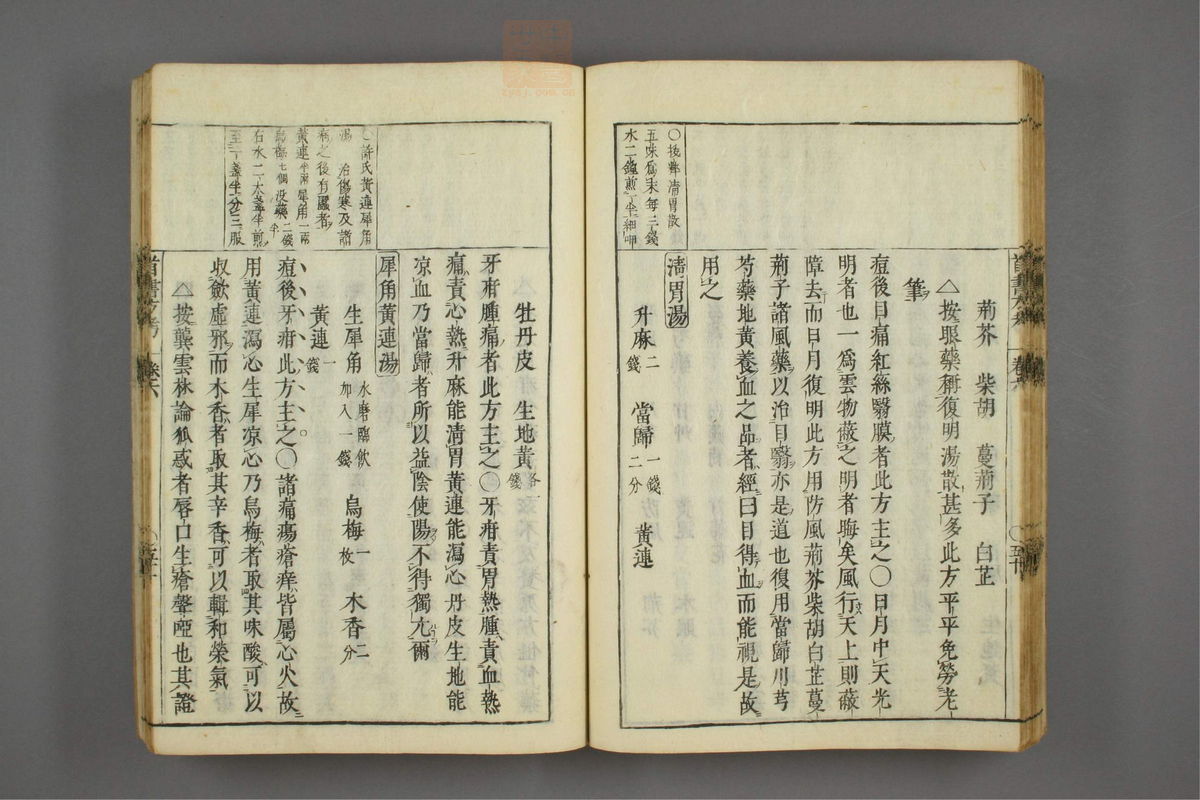 荊芥　柴胡　蔓荊子　白芷
△按眼藥稱復明湯散甚多此方平平免勞老
筆
痘後目痛紅絲翳膜者此方主之〇日月中天光
明者也一爲雲物蔽之明者晦矣風行天上則蔽
障去而日月復明此方用防風荊芥柴胡白芷蔓
荊子諸風藥以治目翳亦是道也復用當歸川芎
芍藥地黃養血之品者經曰目得血而能視是故
用之
〇按犖清胃散
五味爲末每三錢
水二鐘煎一半細呷
清胃湯
升麻二錢　當歸一錢二分　黃連
牡丹皮　生地黃各錢
牙疳腫痛者此方主之〇牙疳責胃熱腫責血熱
痛責心熱升麻能清胃黃連能瀉心丹皮生地能
凉血乃當歸者所以益陰使陽不得獨亢爾
〇許氏黃連犀角
湯　治傷寒及諸
病之後有䘌者
黃連半兩犀角一兩
烏梅七個没藥二錢半
右水二大盞半煎
至一盞半分三服
犀角黃連湯
生犀角水磨臨飲加入一錢　烏梅一枚　木香二分
黃連一錢
痘後牙疳此方主之〇諸痛瘍瘡痒皆屬心火故
用黃連瀉心生犀凉心乃烏梅者取其味酸可以
収斂虛邪而木香者取其辛香可以輯和榮氣
△按龔雲林論狐惑者唇口生瘡聲啞也其證